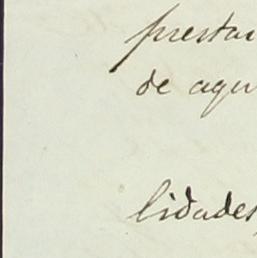 prestar
de agu
lidades